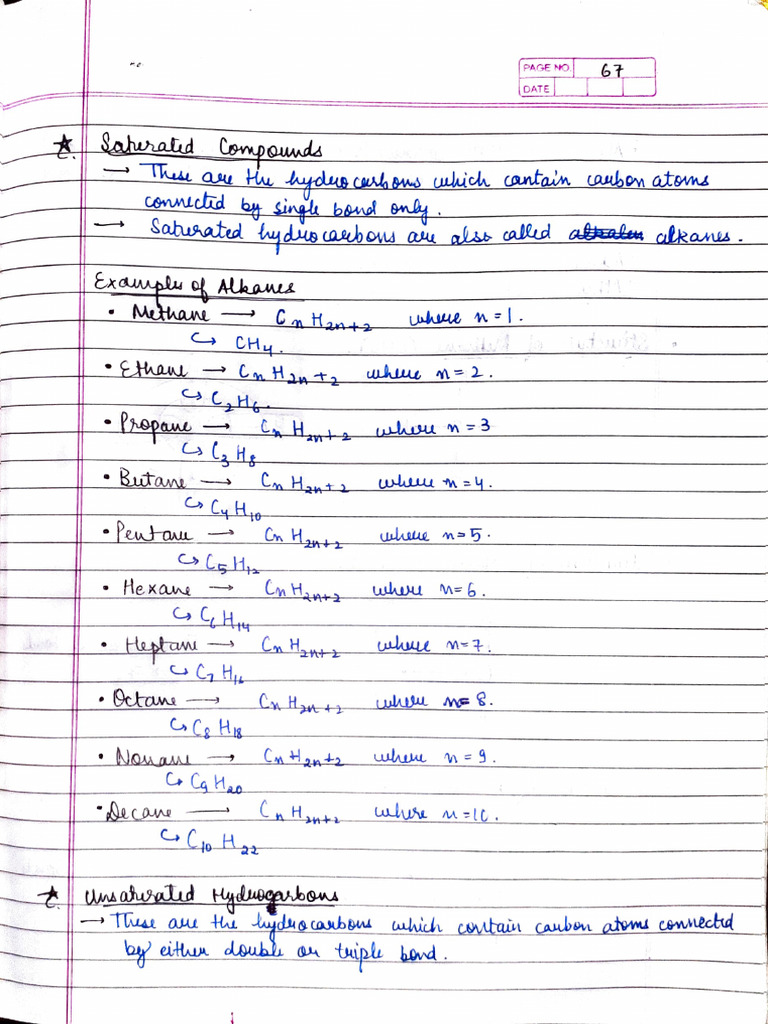 PAGE NO. 67
DATE
Saturated Compounds
→ These are the hydrocarbons which contain carbon atoms
connected by single bond only.
→ Saturated hydrocarbons are also called alkanes.
Examples of Alkanes
• Methane → CnH2n+2 where n=1.
↪ CH4.
• Ethane → CnH2n+2 where n=2.
↪ C2H6.
• Propane → CnH2n+2 where n=3
↪ C3H8
• Butane → CnH2n+2 where n=4.
↪ C4H10
• Pentane → CnH2n+2 where n=5.
↪ C5H12
• Hexane → CnH2n+2 where n=6.
↪ C6H14
• Heptane → CnH2n+2 where n=7.
↪ C7H16
• Octane → CnH2n+2 where n=8.
↪ C8H18
• Nonane → CnH2n+2 where n=9.
↪ C9H20
• Decane → CnH2n+2 where n=10.
↪ C10H22
Unsaturated Hydrocarbons
→ These are the hydrocarbons which contain carbon atoms connected
by either double or triple bond.